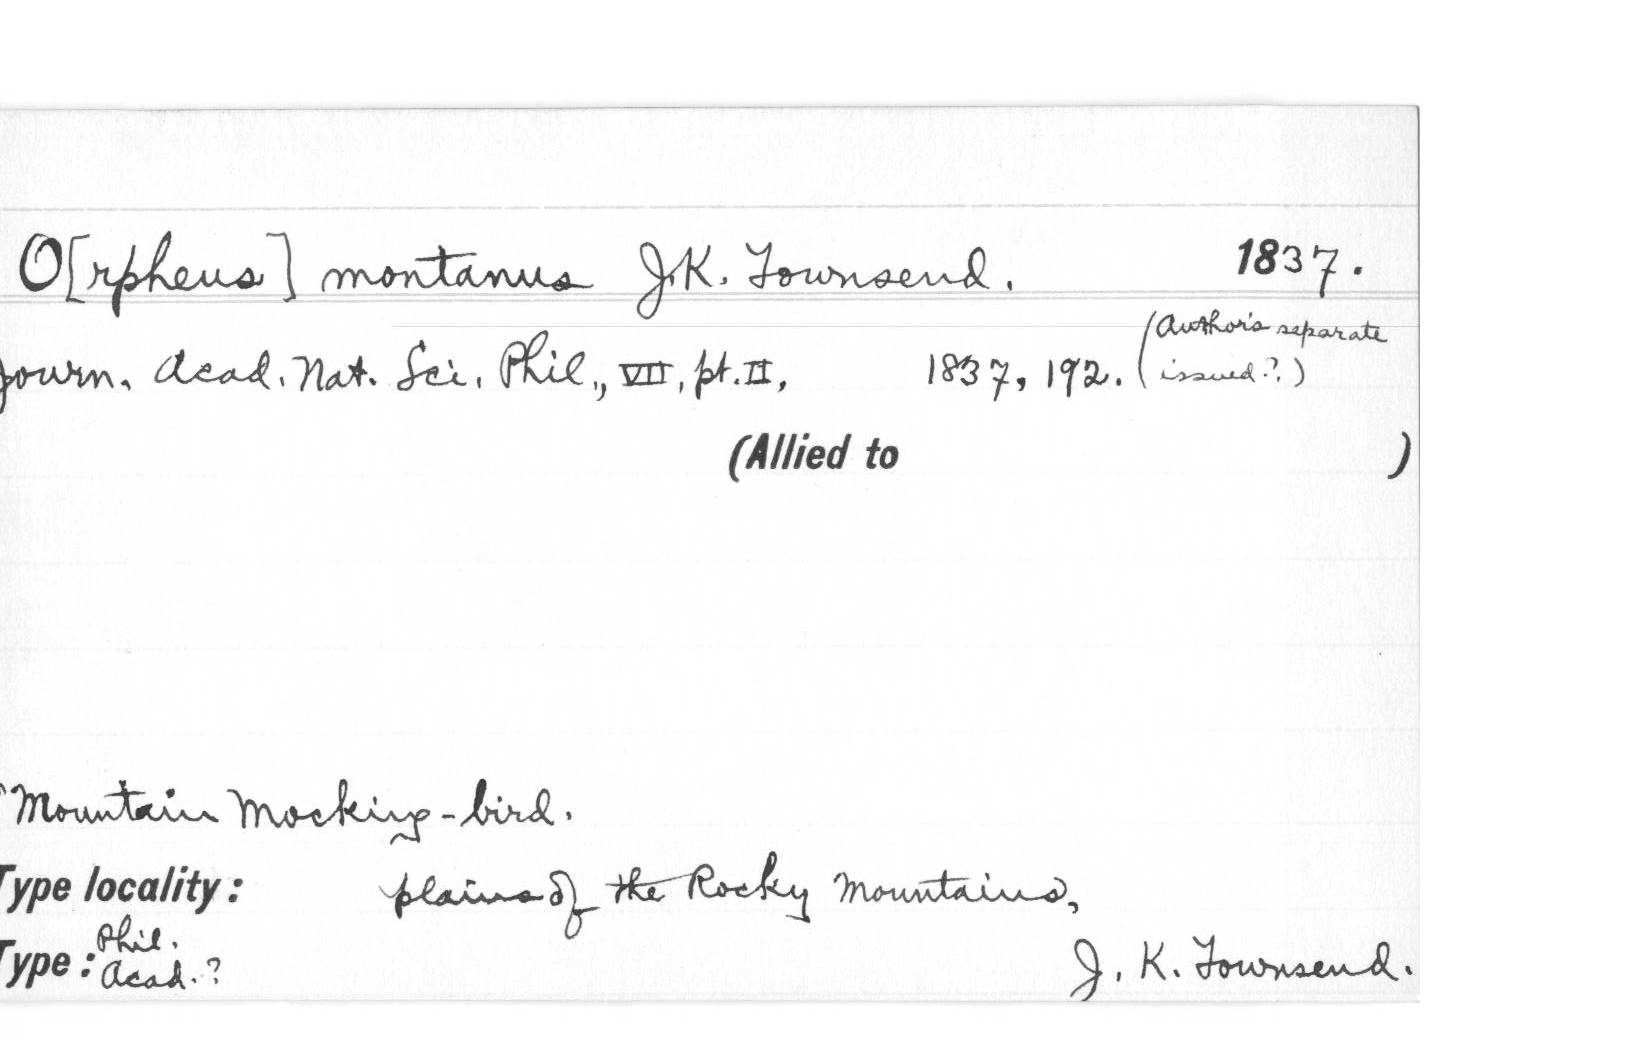 O[rpheus] montanus J.K. Townsend. 1837.
Journ. Acad. Nat. Sci. Phil., VII, pt. II, 1837, 192. (Author's separate
issued?.)
(Allied to )
"Mountain Mocking-bird.
Type locality: plains of the Rocky Mountains,
Type: Phil.
Acad.? J. K. Townsend.